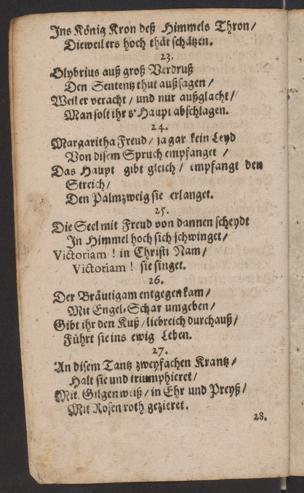 Ins König Kron deß Himmels Thron/
Dieweil ers hoch thät schätzen.
23.
Olybrius auß groß Verdruß
Den Sententz thut außsagen/
Weil er veracht/ und nur außglacht/
Man solt ihr s' Haupt abschlagen.
24.
Margaritha Freud/ ja gar kein Leyd
Von disem Spruch empfanget/
Das Haupt gibt gleich/ empfangt den
Streich/
Den Palmzweig sie erlanget.
25.
Die Seel mit Freud von dannen scheydt
In Himmel hoch sich schwinget/
Victoriam! in Christi Nam/
Victoriam! sie singet.
26.
Der Bräutigam entgegen kam/
Mit Engel-Schar umgeben/
Gibt ihr den Kuß/ liebreich durchauß/
Führt sie ins ewig Leben.
27.
An disem Tantz zweyfachen Krantz/
Halt sie und triumphieret/
Mit Gilgen weiß/ in Ehr und Preyß/
Mit Rosen roth gezieret.
28.